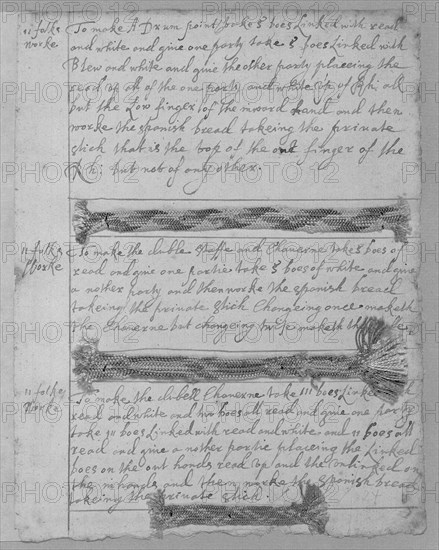 11 folks To make A Drum point take 5 boes Linked with read
worke and white and give one party take 5 boes Linked with
Blew and white and give the other party placeing the
read up all of the one party and white up of Rh: all
but the Low finger of the inword hand and then
worke the spanish bread takeing the private
stich that is the top of the one finger of the
Rh: but not of any other.
11 folks To make the duble and Chaverne take 5 boes of
Worke read and give one partie take 5 boes of white and give
a nother party and then worke the spanish bread
takeing the private stich Changeing once maketh
the Chaverne but changeing twise maketh the
11 folkes To make the dubell Chaverne take 111 boes Linked
Worke read and white and two boes all read and give one party
take 111 boes Linked with read and white and 11 boes all
read and give a nother partie placeing the Linked
boes on the out hands read up and the on
the in hands and then worke the spanish bread
takeing the private stich.